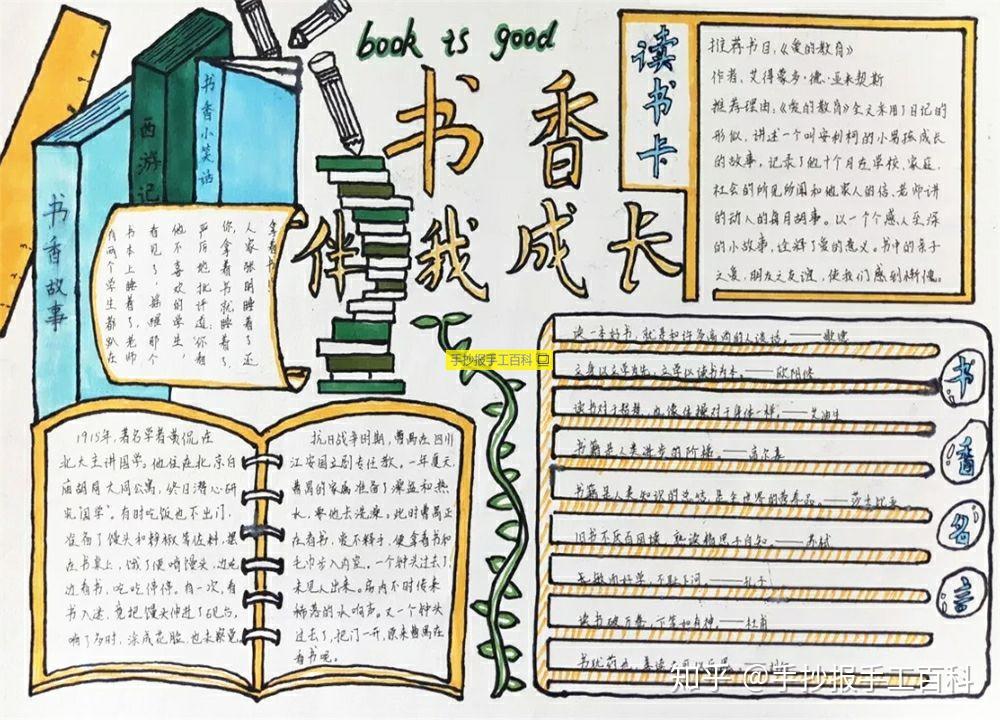 book is good
书香
伴我成长
读书卡
推荐书目,《爱的教育》
作者、艾得蒙多·德·亚米契斯
推荐理由:《爱的教育》全文采用了日记的
形似、讲述一个叫安利柯的小男孩成长
的故事,记录了他十个月在学校、家庭、
社会的所见所闻和他家人的信、老师讲
的动人的每月故事。以一个个感人至深
的小故事,诠释了爱的意义。书中的亲子
之爱,朋友之友谊,使我们感到惭愧。
书香小笑话
西游记
书香故事
有两个学生都趴在
书本上睡着了,老师
看见了,摇醒那个
他不喜欢的学生,
严厉地批评道:你看
你,拿着书就睡着了,
人家张明睡着了还
拿着书!
手抄报手工百科
1915年,著名学者黄侃在
北大主讲国学。他住在北京白
庙胡同大同公寓,终日潜心研
究国学,有时吃饭也不出门,
准备了馒头和辣椒等佐料,摆
在书桌上,饿了便啃馒头,边吃
边看书,吃吃停停。有一次,看
书入迷,竟把馒头伸进了砚台,
啃了多时,涂成花脸,也未察觉
抗日战争时期,曹禺在四川
江安国立剧专任教。一年夏天,
曹禺的家属准备了澡盆和热
水,要他去洗澡。此时曹禺正
在看书,爱不释手,便拿着书和
毛巾步入内室。一个钟头过去了,
未见人出来。房内不时传来
稀落的水响声。又一个钟头
过去了,把门一开,原来曹禺在
看书呢。
书香名言
读一本好书,就是和许多高尚的人谈话。——歌德
立身以立学为先,立学以读书为本。——欧阳修
读书对于智慧,也像体操对于身体一样。——艾迪生
书籍是人类进步的阶梯。——高尔基
书籍是人类知识的
旧书不厌百回读,熟读精思子自知。——苏轼
敏而好学,不耻下问。——孔子
读书破万卷,下笔如有神。——杜甫
书犹药也,善读
知乎 @手抄报手工百科